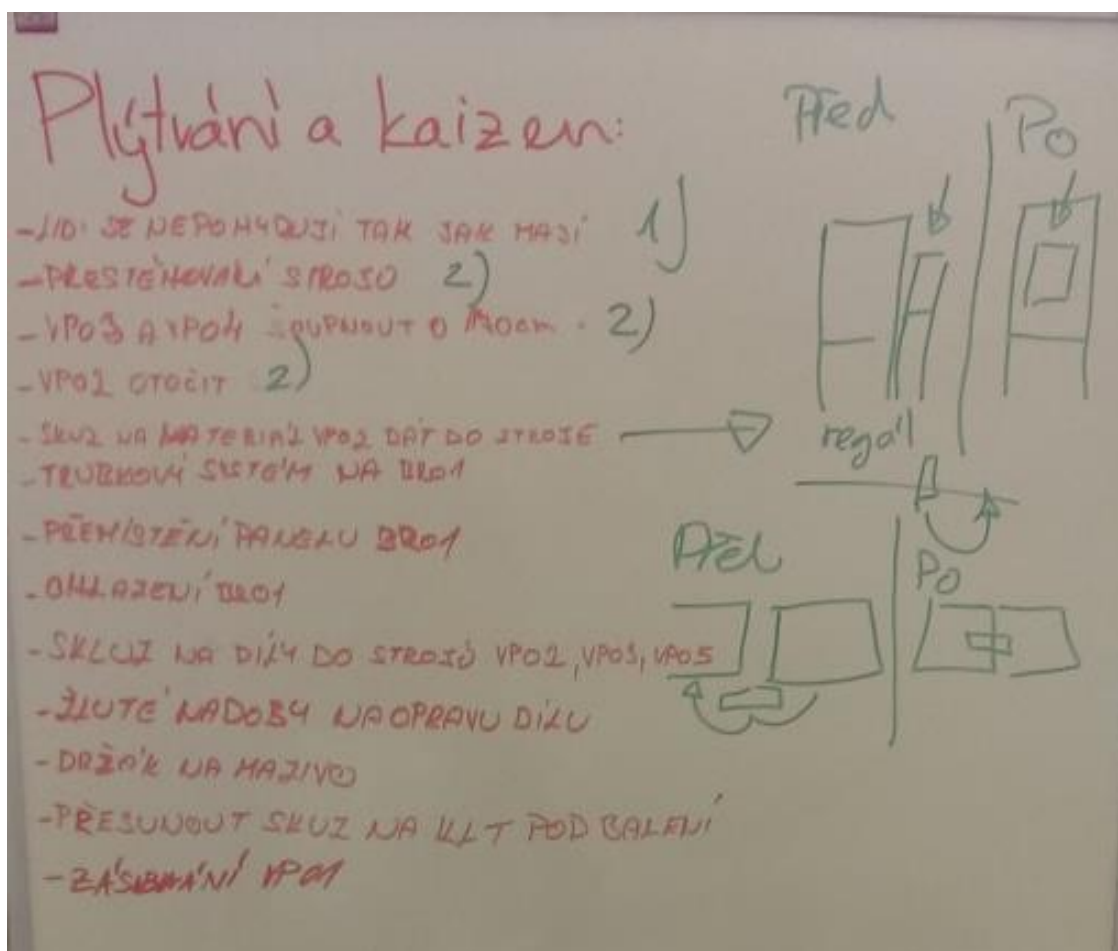 Plýtvání a kaizen:
- LIDI SE NEPOHYBUJÍ TAK JAK MAJÍ 1)
- PŘESTĚHOVÁNÍ STROJŮ 2)
- VP03 A VP04 ŠOUPNOUT O 2)
- VP02 OTOČIT 2)
- SKUZ NA MATERIÁL VP02 DÁT DO STROJE
- TRUBKOVÝ SYSTÉM NA BR01
- PŘEMÍSTĚNÍ PANELU BR01
- BR01
- SKLUZ NA DÍLY DO STROJŮ VP02, VP03, VP05
- ŽLUTÉ NÁDOBY NA OPRAVU DÍLU
- DRŽÁK NA MAZIVO
- PŘESUNOUT SKUZ NA KLT POD BALENÍ
- ZÁSOBOVÁNÍ VP01
Před
Po
regál
Před
Po